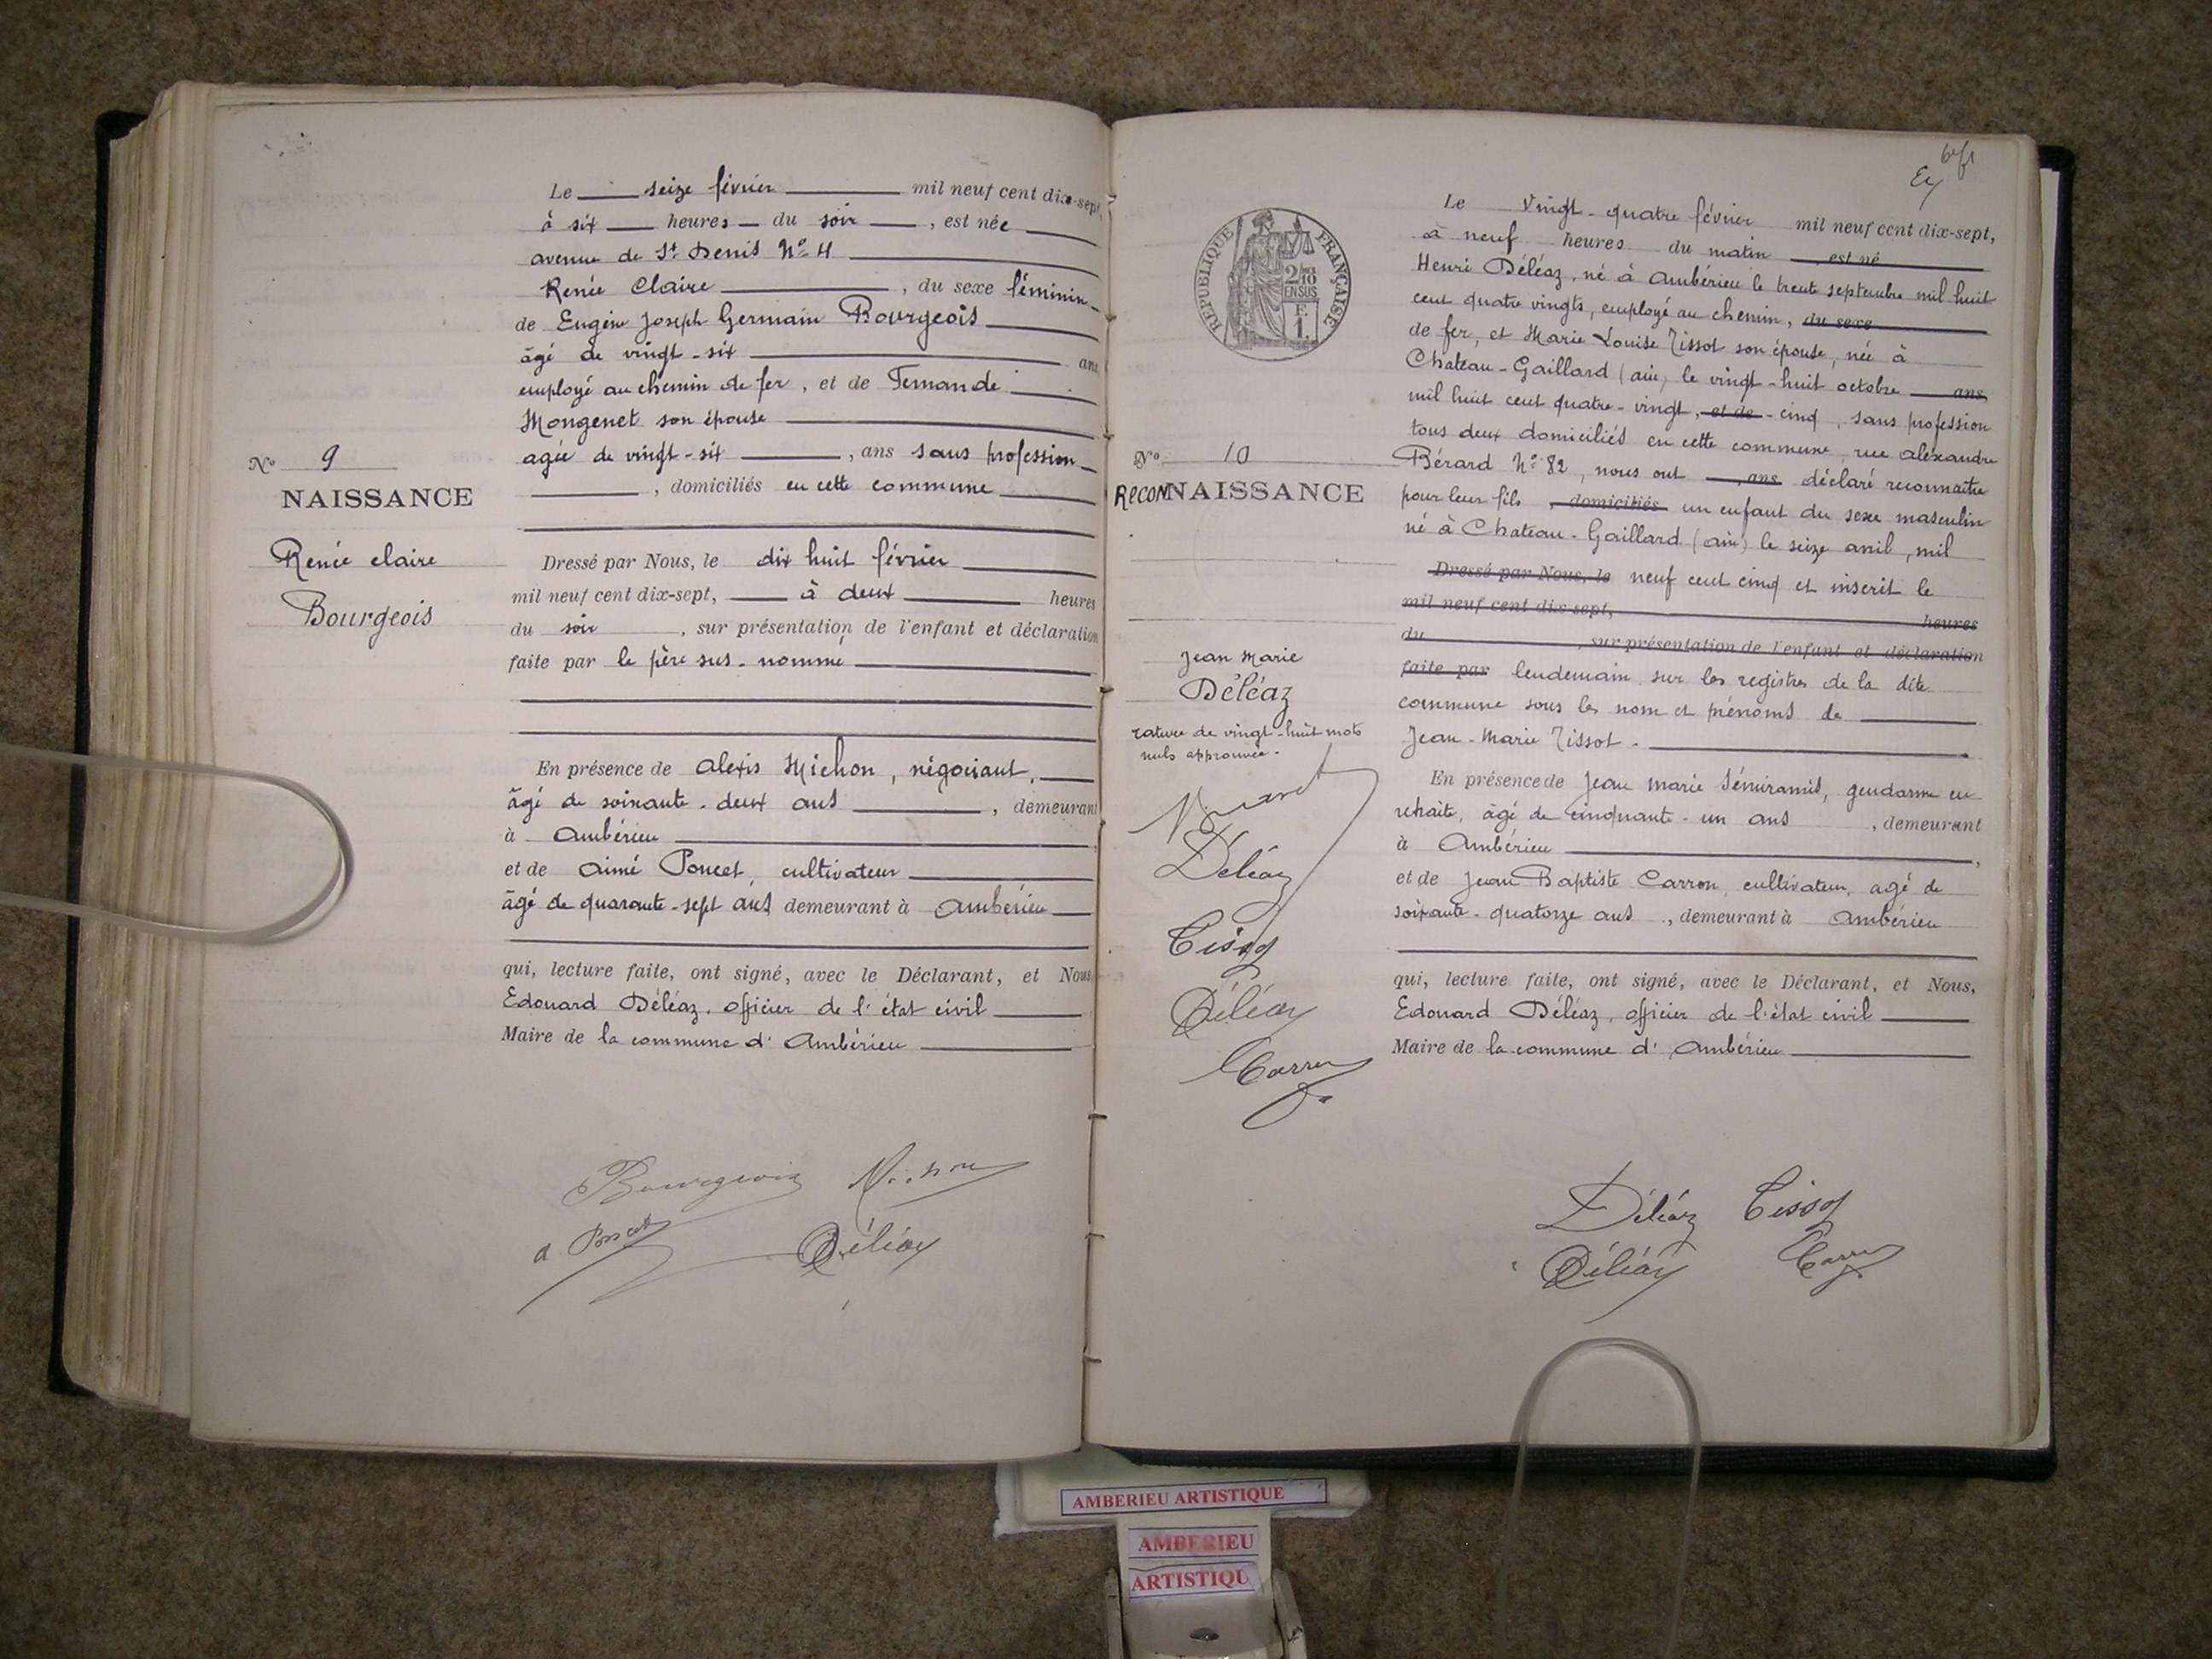 Le seize février mil neuf cent dix-sept
à six heures du soir, est née
avenue de St Denis No 4
Renée Claire, du sexe féminin
de Eugène Joseph Germain Bourgeois
âgé de vingt-six ans
employé au chemin de fer, et de Fernande
Mongenet son épouse
No 9
agée de vingt-six, ans sans profession
NAISSANCE
, domiciliés en cette commune
Renée claire
Bourgeois
Dressé par Nous, le dix huit février
mil neuf cent dix-sept, à deux heures
du soir, sur présentation de l'enfant et déclaration
faite par le père sus-nommé
En présence de Alexis Michon, négociant,
âgé de soixante-deux ans, demeurant
à Ambérieu
et de Aimé Poncet, cultivateur
âgé de quarante-sept ans demeurant à Ambérieu
qui, lecture faite, ont signé, avec le Déclarant, et Nous,
Edouard Déléaz, officier de l'état civil
Maire de la commune d'Ambérieu
Bourgeois Michon
a. Poncet Déléaz
RÉPUBLIQUE FRANÇAISE
2/10
EN SUS
F.
1.
Le Vingt-quatre février mil neuf cent dix-sept,
à neuf heures du matin est né
Henri Déléaz, né à Ambérieu le trente septembre mil huit
cent quatre vingts, employé au chemin, du sexe
de fer, et Marie Louise Tissot son épouse, née à
Chateau-Gaillard (ain) le vingt-huit octobre ans
mil huit cent quatre-vingt, et de -cinq, sans profession
tous deux domiciliés en cette commune, rue Alexandre
No 10
Bérard No 82, nous ont , ans déclaré reconnaître
RECONNAISSANCE
pour leur fils , domiciliés un enfant du sexe masculin
né à Chateau-Gaillard (ain) le seize avril, mil
Dressé par Nous, le neuf cent cinq et inscrit le
mil neuf cent dix-sept, heures
du , sur présentation de l'enfant et déclaration
faite par lendemain sur les registres de la dite
commune sous les nom et prénoms de
Jean-Marie Tissot.
Jean Marie
Déléaz
rature de vingt-huit mots
nuls approuvée.
Déléaz
Tissot
Déléaz
Carron
En présence de Jean Marie Sémiramis, gendarme en
retraite, âgé de cinquante-un ans, demeurant
à Ambérieu,
et de Jean Baptiste Carron, cultivateur, agé de
soixante-quatorze ans, demeurant à Ambérieu
qui, lecture faite, ont signé, avec le Déclarant, et Nous,
Edouard Déléaz, officier de l'état civil
Maire de la commune d'Ambérieu
Déléaz Tissot
Déléaz Carron
AMBERIEU ARTISTIQUE
AMBERIEU
ARTISTIQU